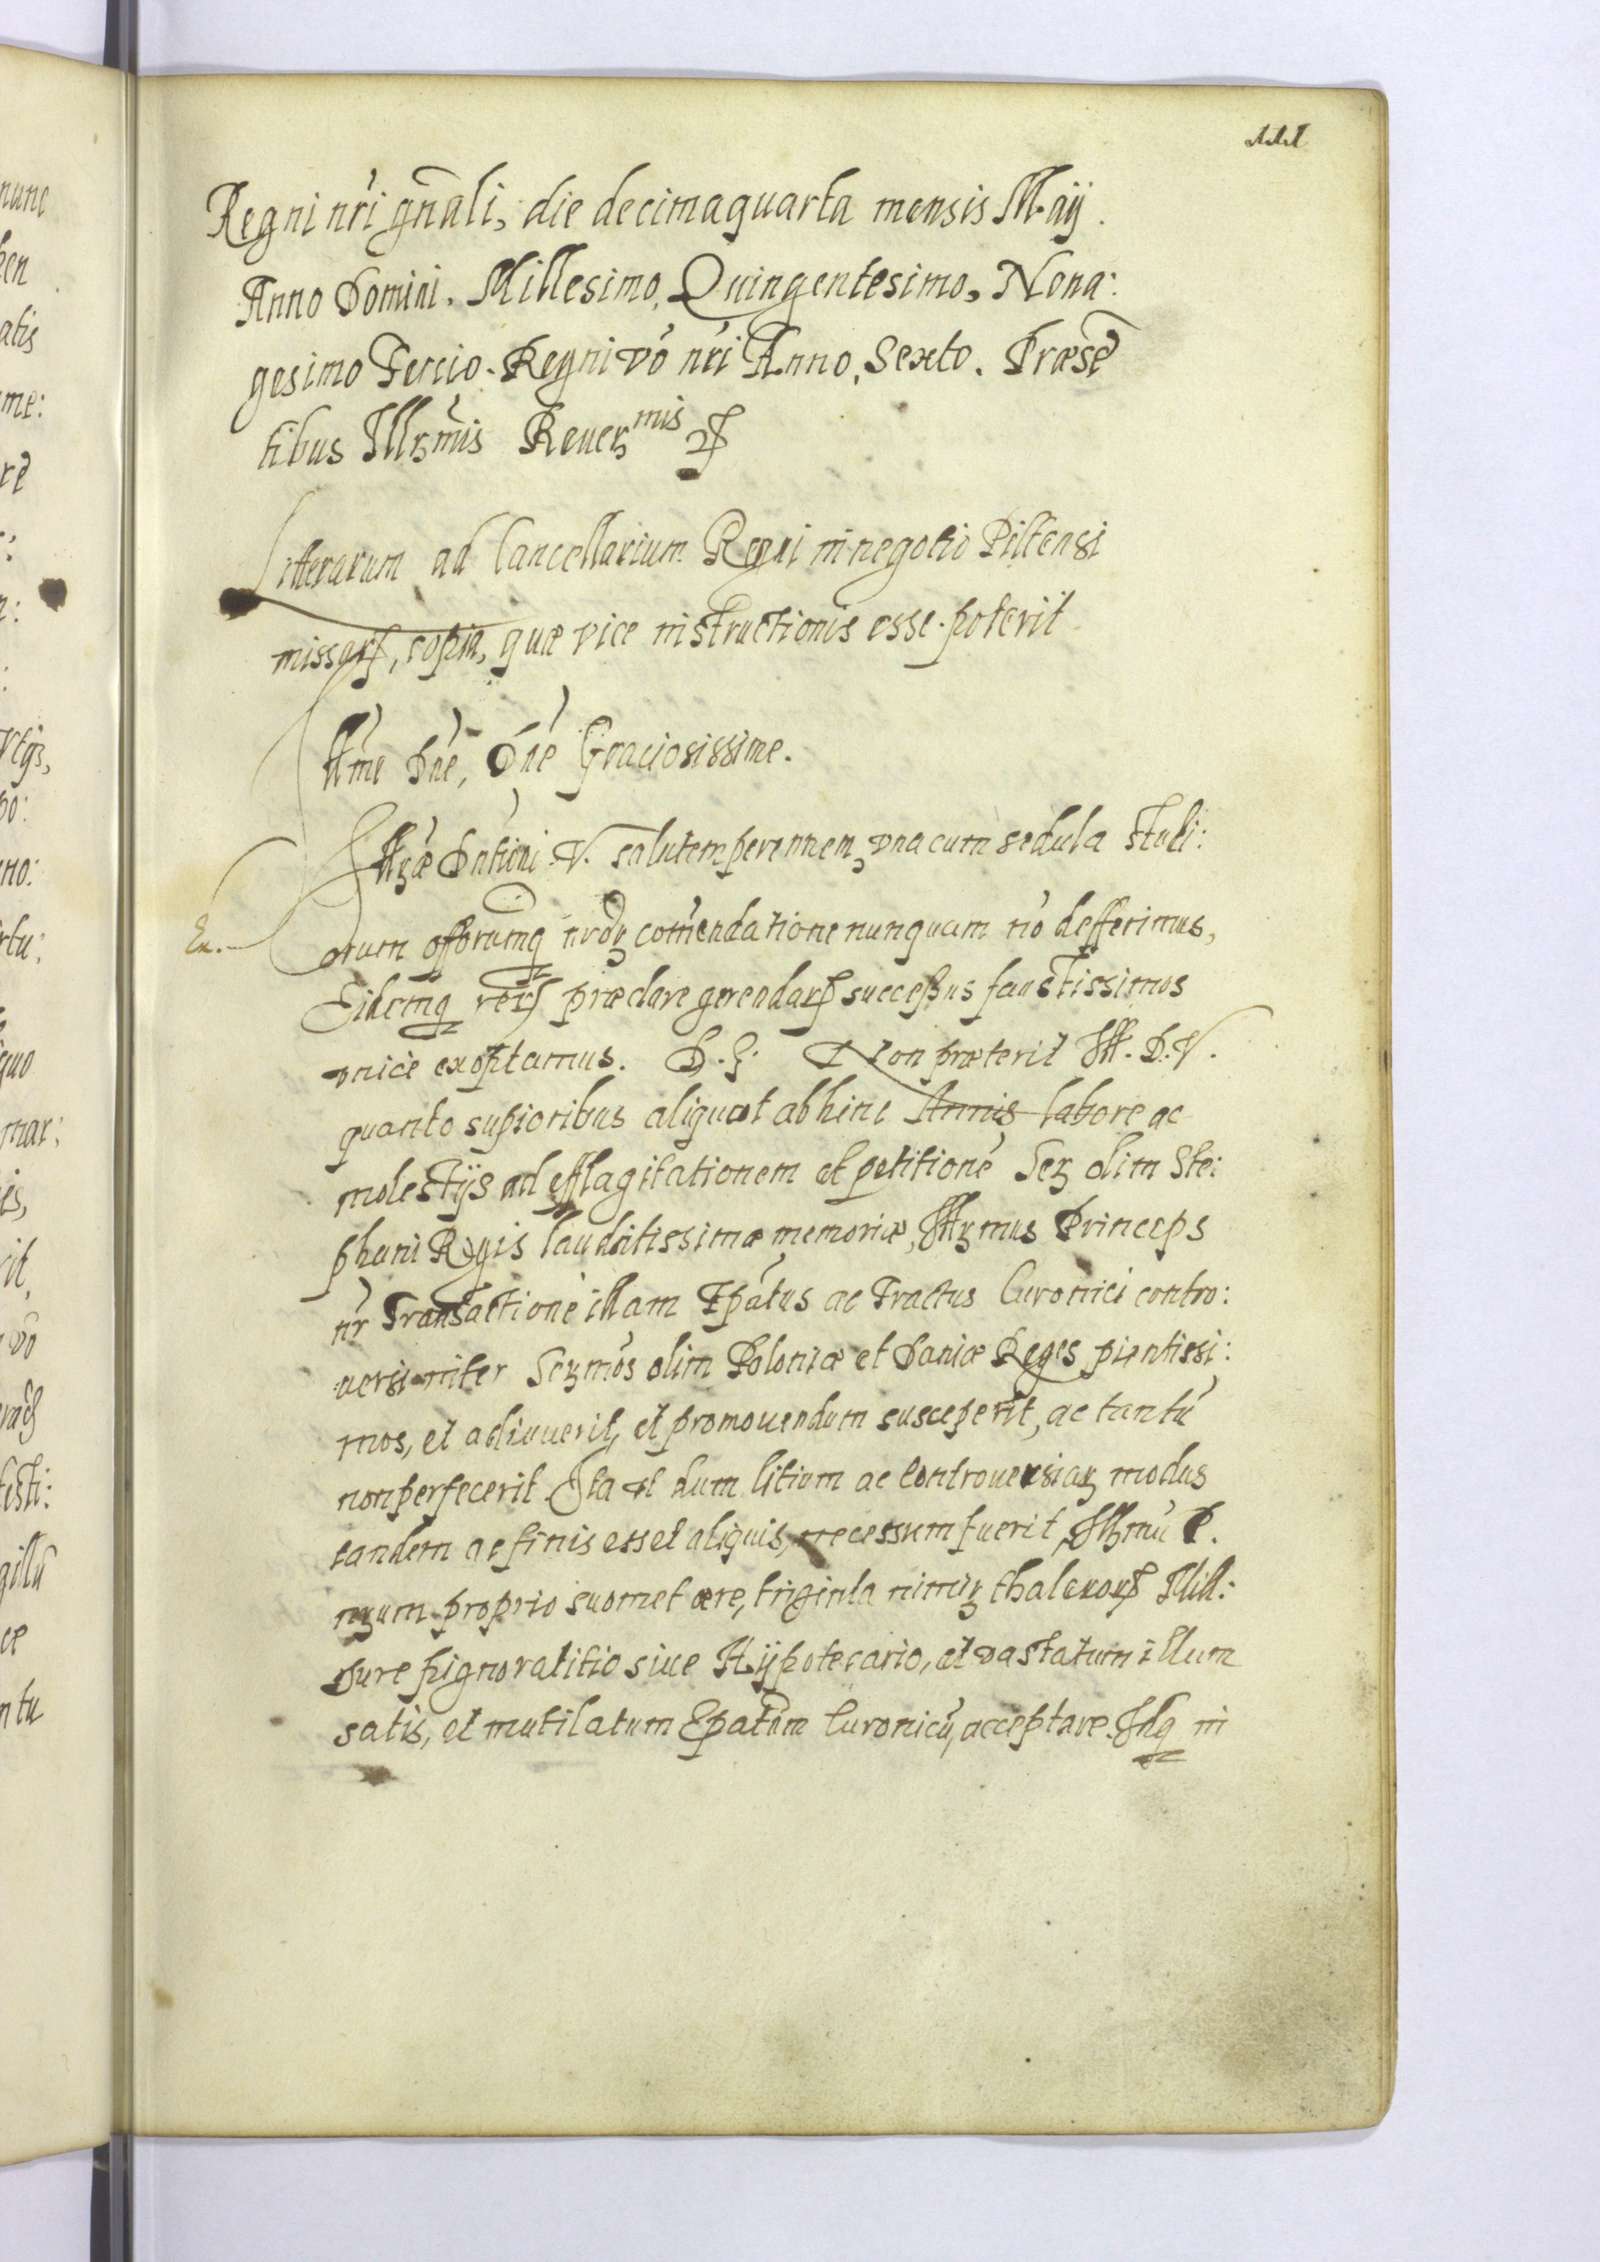 Regni nr̃i gñali, die decimaquarta mensis Maij.
Anno Domini. Millesimo, Quingentesimo, Nona:
gesimo Tercio. Regni vō nr̃i Anno, Sexto. Præsẽ
tibus Illꝫmis Reuerꝫmis
Litterarum ad Cancellarium Regni in negotio Piltensi
missarꝝ, copia, quæ vice instructionis esse poterit
Illme Dne, Dne Graciosissime.
Illꝫæ Dntioni V. salutem perennem, vna cum sedula studi:
Ex. orum offorumq nrorꝫ com̃endatione nunquam nō defferimus,
Eidemq rerꝝ præclare gerendarꝝ successus faustissimos
vnicè exoptamus. Non præterit Ill. D. V.
quanto supioribus aliquot abhinc Annis labore ac
molestijs ad efflagitationem et petitionẽ Serꝫ olim Ste:
phani Regis laudatissimæ memoriæ, Illꝫmus Princeps
nr̃ Transactionẽ illam Epãtus ac Tractus Curonici contro:
uersi inter Serꝫmos olim Poloniæ et Daniæ Reges pientissi:
mos, et adiuuerit, et promouendum susceperit, ac tantũ
non perfecerit. Ita vt dum litium ac controuersiarꝫ modus
tandem ac finis esset aliquis, necessum fuerit Illꝫmũ P.
nrum proprio suomet ære, triginta nimirꝫ thalerorꝝ Mill:
Jure pignoratitio siue Hijpotecario, et vastatum illum
satis, et mutilatum Epatum Curonicũ, acceptare. Idq in